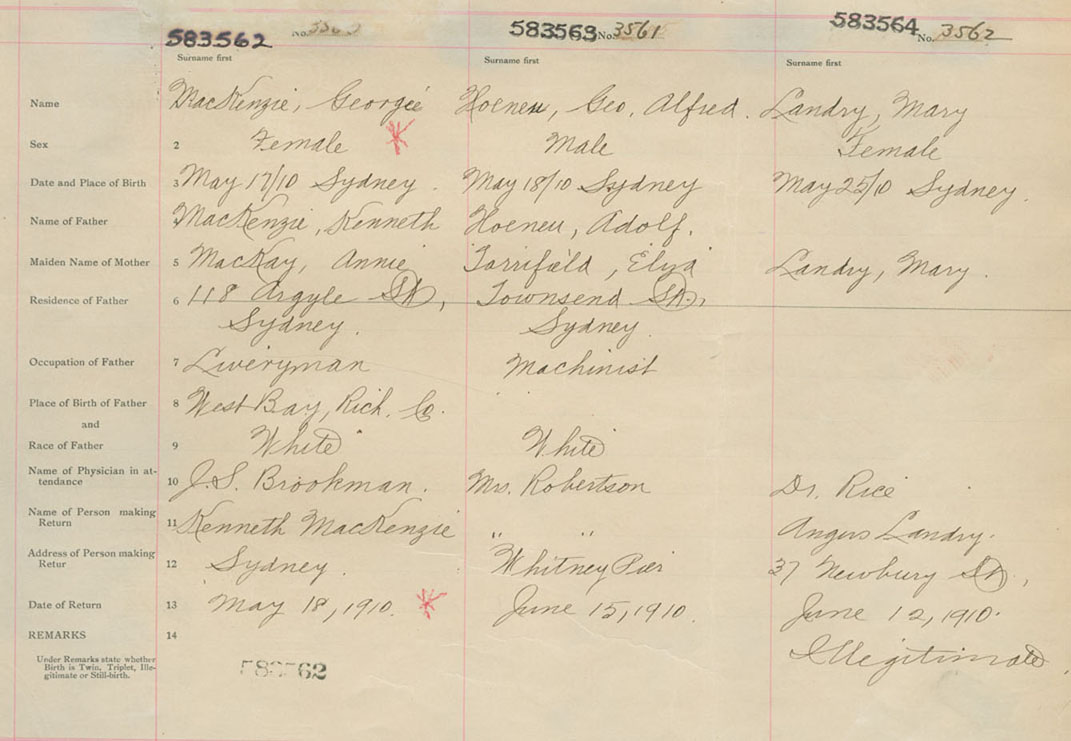 583562 No. 3560 583563 No. 3561 583564 No. 3562
Surname first Surname first Surname first
Name MacKenzie, Georgie Hoeneu, Geo. Alfred. Landry, Mary
Sex 2 Female Male Female
Date and Place of Birth 3 May 17/10 Sydney. May 18/10 Sydney May 25/10 Sydney.
Name of Father MacKenzie, Kenneth Hoeneu, Adolf.
Maiden Name of Mother 5 MacKay, Annie Landry, Mary.
Residence of Father 6 118 Argyle St, Townsend St,
Sydney. Sydney.
Occupation of Father 7 Liveryman Machinist
Place of Birth of Father 8 West Bay, Rich. Co.
and
Race of Father 9 White White
Name of Physician in at-
tendance 10 J.S. Brookman. Mrs. Robertson Dr. Rice
Name of Person making
Return 11 Kenneth MacKenzie " " Angus Landry.
Address of Person making
Retur 12 Sydney. Whitney Pier 37 Newbury St,
Date of Return 13 May 18, 1910. June 15, 1910. June 12, 1910.
REMARKS 14
Under Remarks state whether Illegitimate
Birth is Twin, Triplet, Ille-
gitimate or Still-birth.
583562